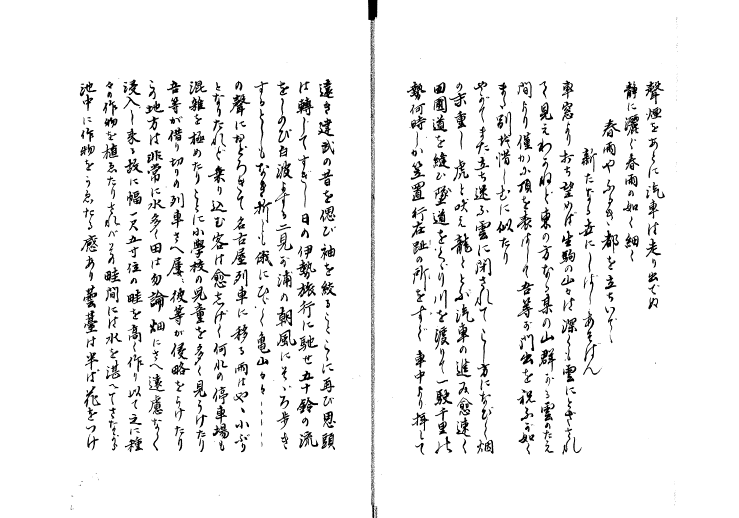 聲煙をあとに汽車は走り出でぬ
静に灑ぐ春雨の如く細く
春雨やふるき都を立ちいでて
新たなる旅にしばしあそばん
車窓より打ち望めば生駒の山々は深くも雲にとざされ
て見えわかねど東の方なる某の山群がる雲のたえ
間より僅か小頂を表はして吾等が門出を祝ふが如く
また別を惜しむに似たり
やがてまた立ち迷ふ雲に閉されてこし方になびく烟
の末重し虎と吠え龍ととぶ汽車の進み愈速く
田圃道を縫ひ墜道をくぐり川を渡りて一駛千里の
勢何時しか笠置行在趾の所をすぐ車中より拝して
遠き建武の昔を偲び袖を絞ることここに再び思頭
は轉じてすぎし日の伊勢旅行に馳せ五十鈴の流
をしのび白波よする二見が浦の朝風にそゞろ歩き
するとしもなき折しも俄にひびく亀山々々・・・・
の聲におどろきて名古屋列車に移る雨はやゝ小ぶり
となりたれど乗り込む客は愈しげく何れの停車場も
混雑を極めたりことに小學校の児童を多く見うけたり
吾等が借り切りの列車さへ屡彼等が侵略をうけたり
この地方は非常に水多く田は勿論畑にさへ遠慮なく
浸入し来る故に幅一尺五寸位の畦を高く作り以て之に種
々の作物を植ゑたりされバその畦間には水を湛へてさながら
池中に作物をうゑたる感あり蕓薹は半ば花をつけ